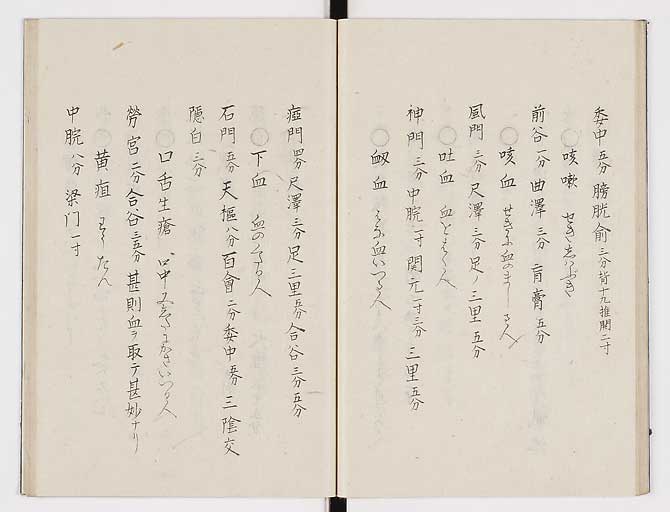 委中 五分 膀胱俞 三分 背十九推開二寸
○咳嗽 せきしはぶき
前谷 一分 曲澤 三分 肓膏 五分
○咳血 せきに血のまじる人
風門 三分 尺澤 三分 足ノ三里 五分
○吐血 血をはく人
神門 三分 中脘 一寸 関元 一寸三分 三里 五分
○衂血 はな血いづる人
瘂門 四分 尺澤 三分 足三里 五分 合谷 三分五分
○下血 血のくだる人
石門 五分 天樞 八分 百會 二分 委中 五分 三陰交
隠白 三分
○口舌生瘡 口中又はしたにかさいづる人
勞宮 二分 合谷 三五分 甚則血ヲ取テ甚妙ナリ
○黄疸 わうだん
中脘 八分 梁門 一寸